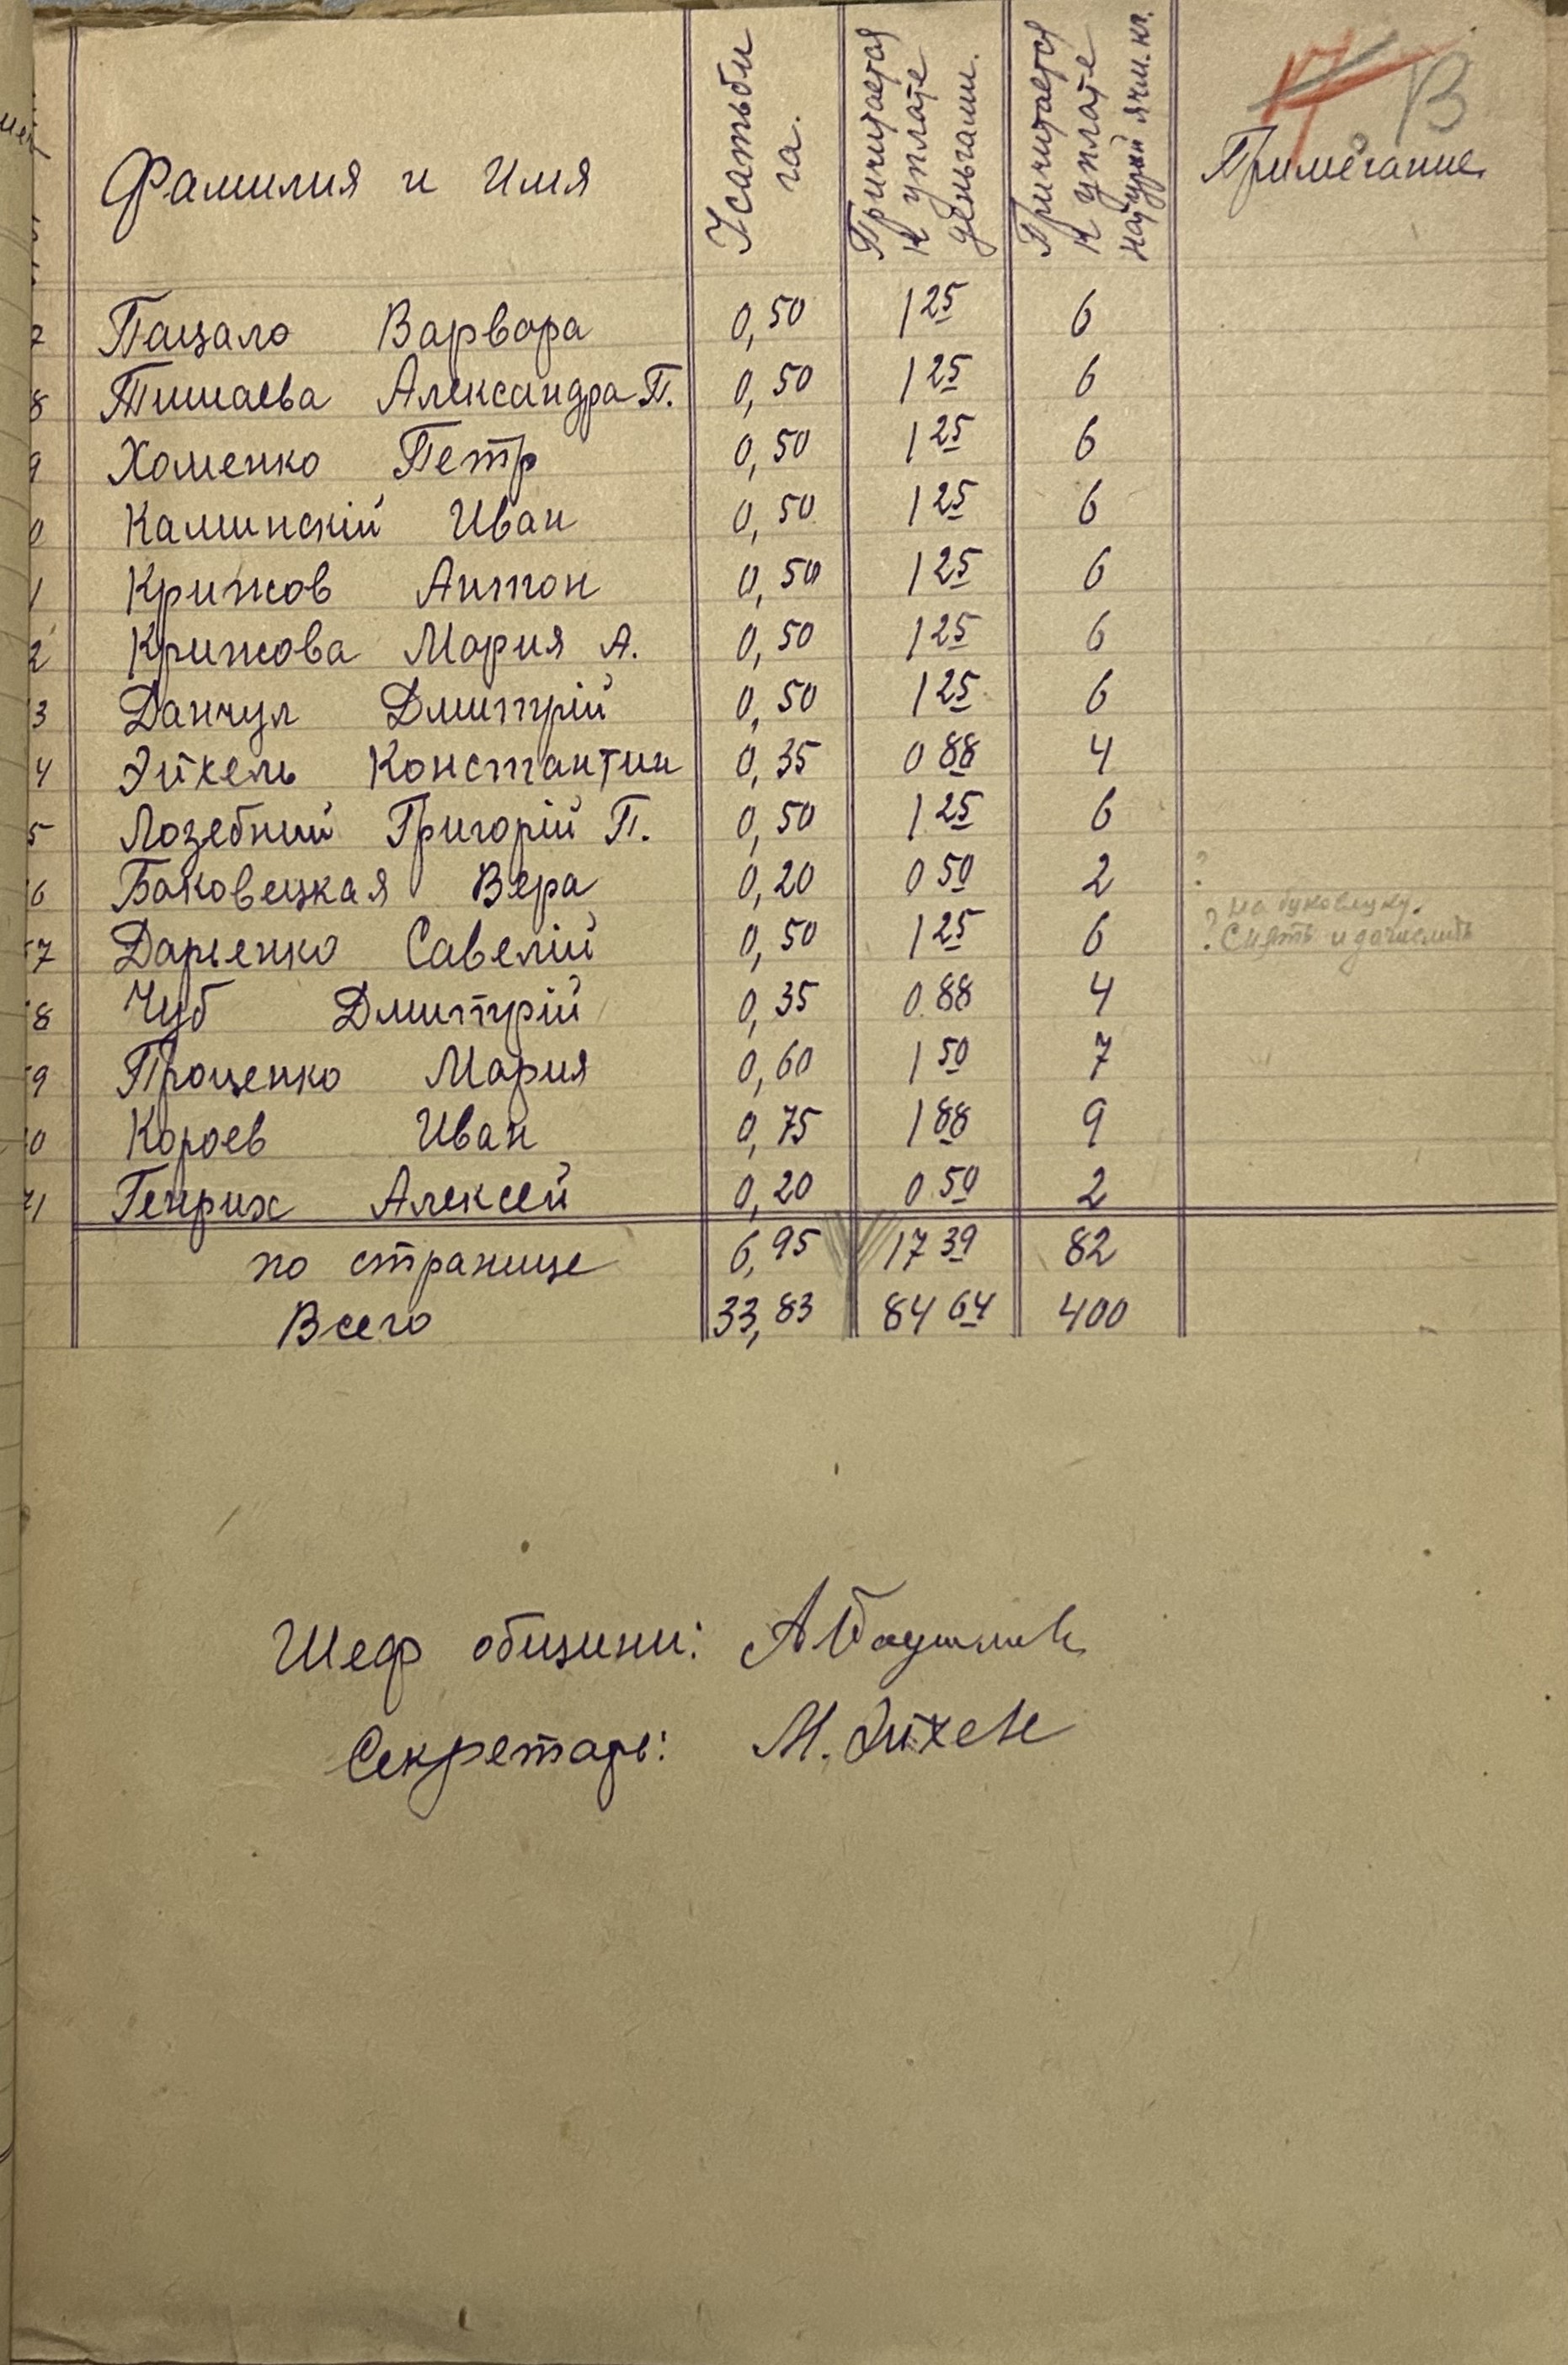 В
Фамилия и Имя Усадьбы га. Причитается к уплате деньгами. Причитается к уплате натурой ячм. кг. Примечание
7 Пацало Варвара 0,50 1 25 6
8 Тимаева Александра П. 0,50 1 25 6
9 Хоменко Петр 0,50 1 25 6
0 Каминскій Иван 0,50 1 25 6
1 Крижов Антон 0,50 1 25 6
2 Крижова Мария А. 0,50 1 25 6
3 Данчул Дмитрій 0,50 1 25 6
4 Эйхель Константин 0,35 0 88 4
5 Лозебний Григорій П. 0,50 1 25 6
6 Баковецкая Вера 0,20 0 50 2 ?
7 Дарьенко Савелій 0,50 1 25 6 ?
8 Чуб Дмитрій 0,35 0 88 4
9 Проценко Мария 0,60 1 50 7
0 Короев Иван 0,75 1 88 9
1 Генрих Алексей 0,20 0 50 2
по странице 6,95 17 39 82
Всего 33,83 84 64 400
Шеф общини:
Секретарь: М. Эйхель